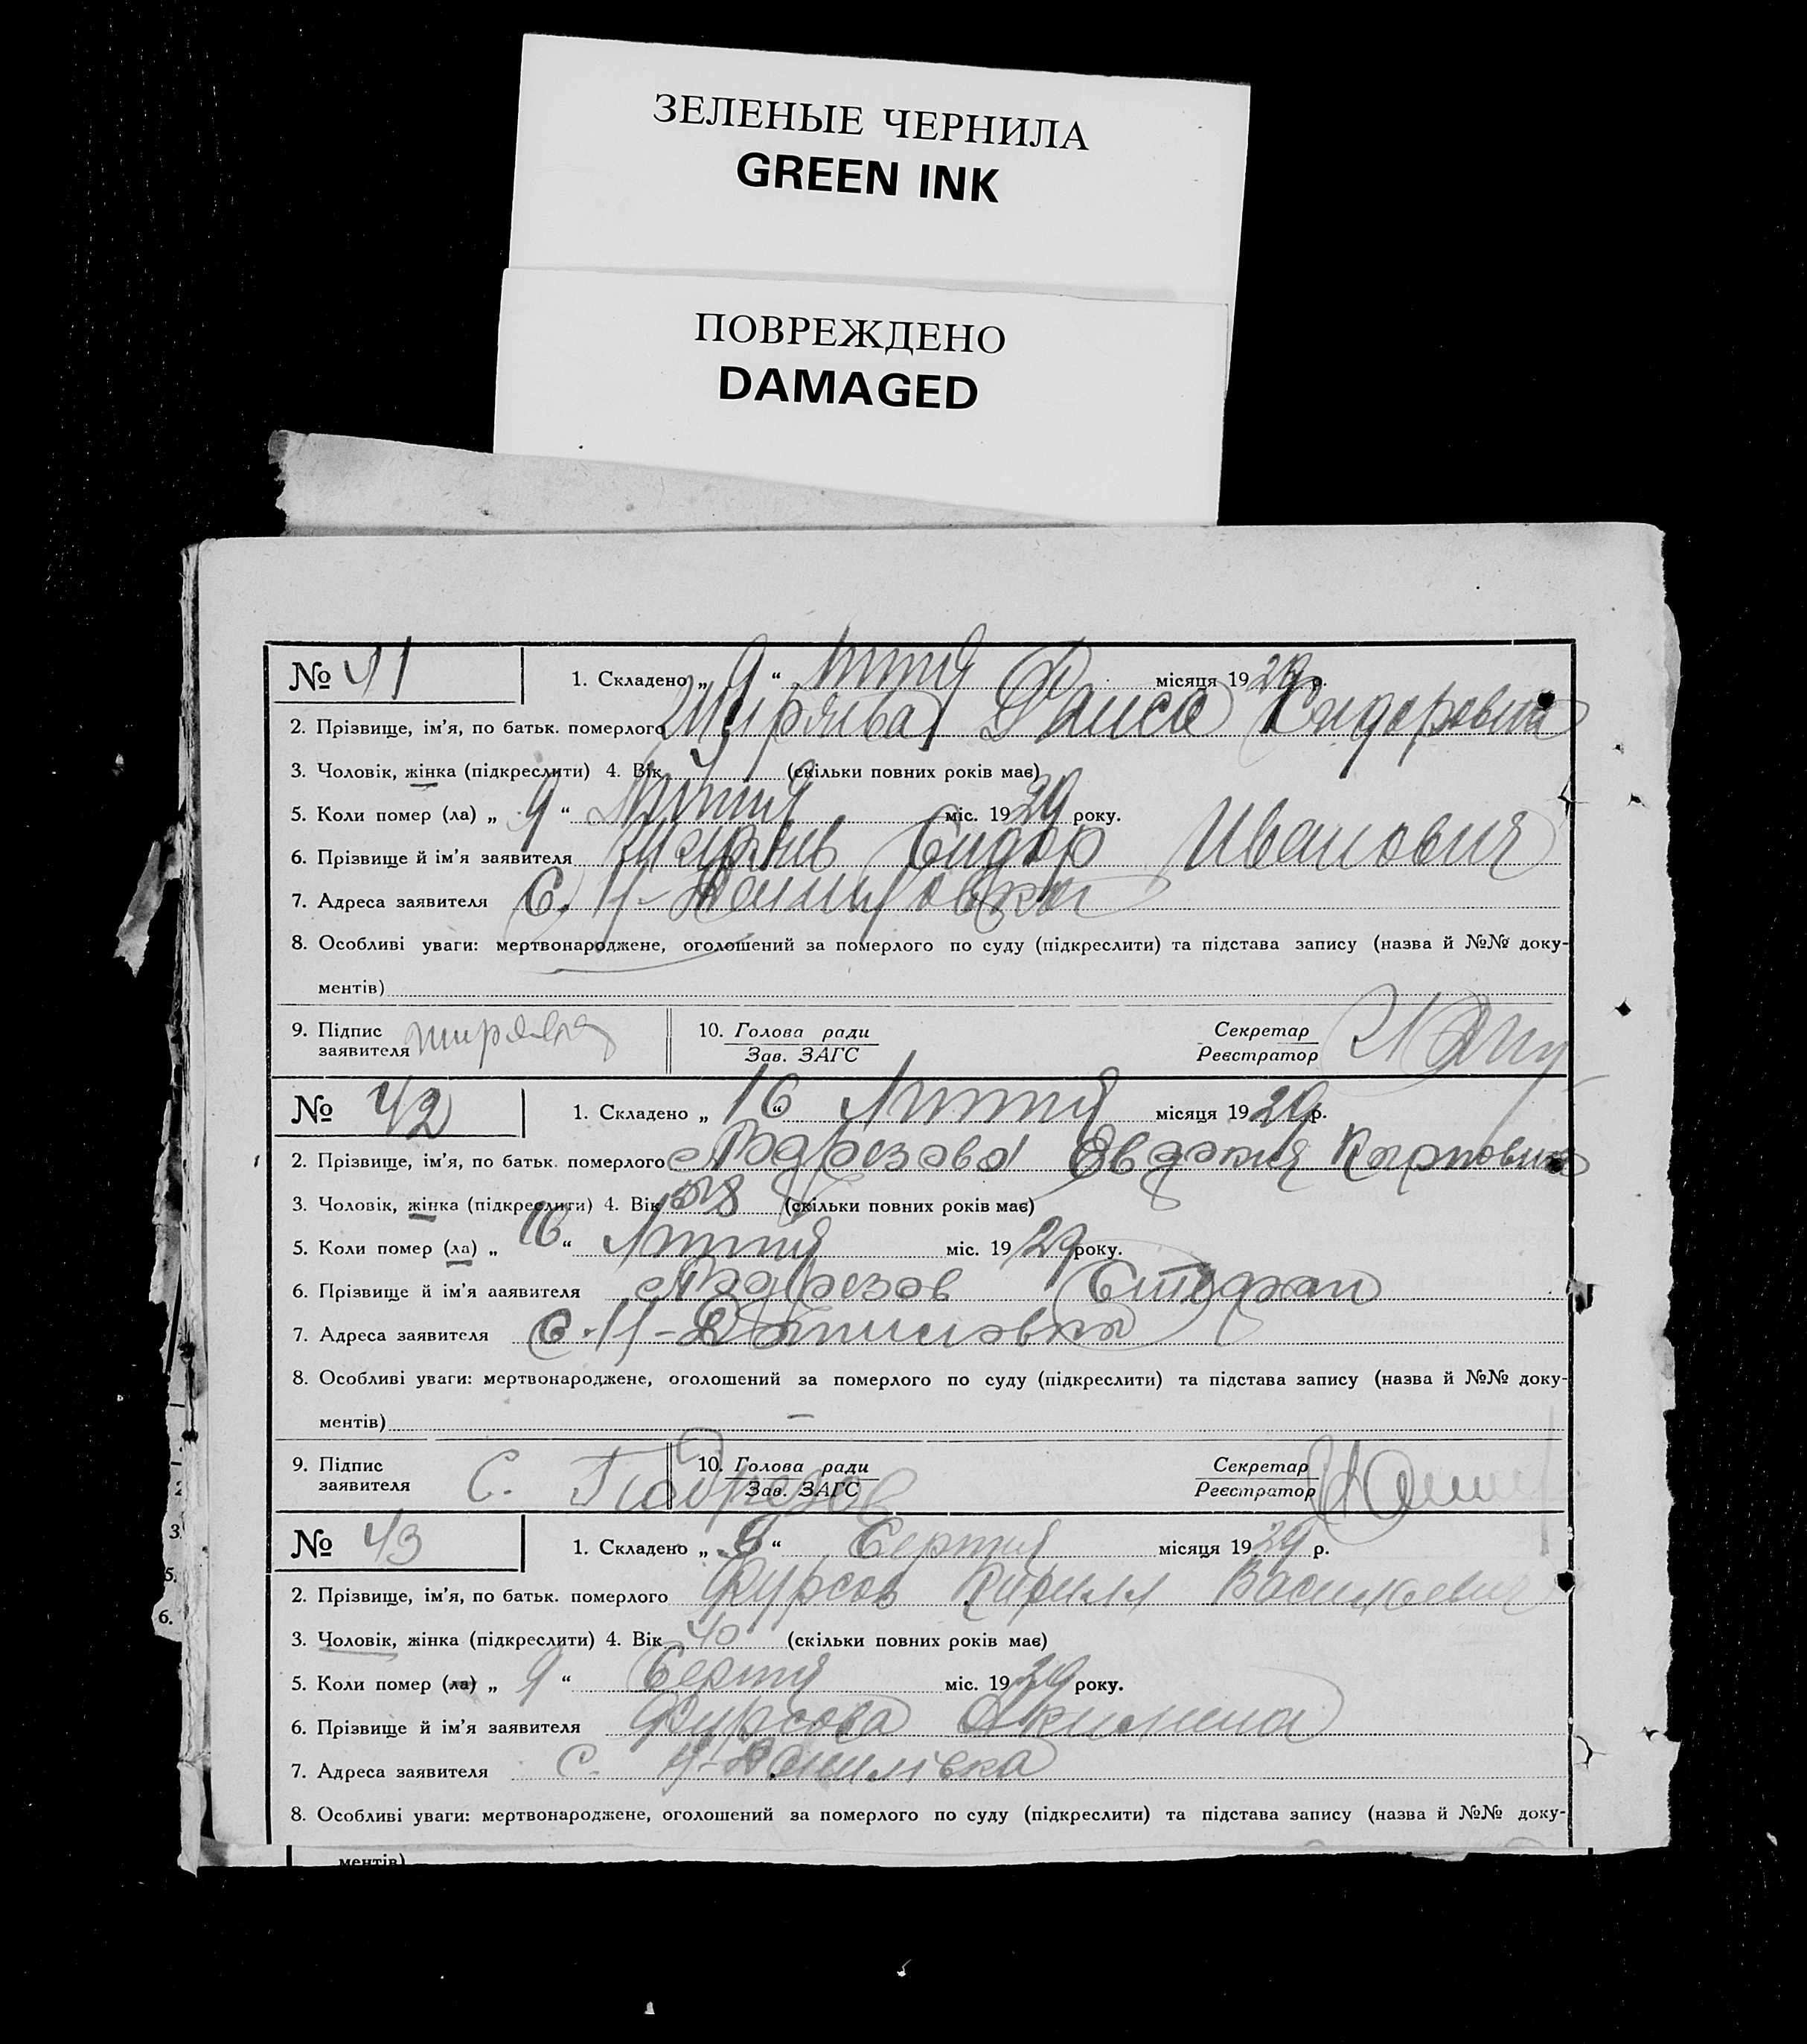 ЗЕЛЕНЫЕ ЧЕРНИЛА
GREEN INK
ПОВРЕЖДЕНО
DAMAGED
№ 41
1. Складено „ 9 “ Липня місяця 1929 р.
2. Прізвище, ім'я, по батьк. померлого Ширяева Раиса Сидоровна
3. Чоловік, жінка (підкреслити) 4. Вік (скільки повних років має)
5. Коли помер (ла) „ 9 “ Липня міс. 1929 року.
6. Прізвище й ім'я заявителя Ширяев Сидор Иванович
7. Адреса заявителя С. Н-Даниловка
8. Особливі уваги: мертвонароджене, оголошений за померлого по суду (підкреслити) та підстава запису (назва й №№ доку-
ментів)
9. Підпис заявителя Ширяев
10. Голова ради
Зав. ЗАГС
Секретар
Реєстратор
№ 42
1. Складено „ 16 “ Липня місяця 1929 р.
2. Прізвище, ім'я, по батьк. померлого Евдокия Карповна
3. Чоловік, жінка (підкреслити) 4. Вік 58 (скільки повних років має)
5. Коли помер (ла) „ 16 “ Липня міс. 1929 року.
6. Прізвище й ім'я ааявителя Стефан
7. Адреса заявителя С. Н-Даниловка
8. Особливі уваги: мертвонароджене, оголошений за померлого по суду (підкреслити) та підстава запису (назва й №№ доку-
ментів) —
9. Підпис заявителя С.
10. Голова ради
Зав. ЗАГС
Секретар
Реєстратор
№ 43
1. Складено „ 9 “ Серпня місяця 1929 р.
2. Прізвище, ім'я, по батьк. померлого Фурсов Кирилл Васильевич
3. Чоловік, жінка (підкреслити) 4. Вік 40 (скільки повних років має)
5. Коли помер (ла) „ 9 “ Серпня міс. 1929 року.
6. Прізвище й ім'я заявителя Фурсова Акилина
7. Адреса заявителя С. Н-Данилівка
8. Особливі уваги: мертвонароджене, оголошений за померлого по суду (підкреслити) та підстава запису (назва й №№ доку-
ментів)
3.
5.
6.